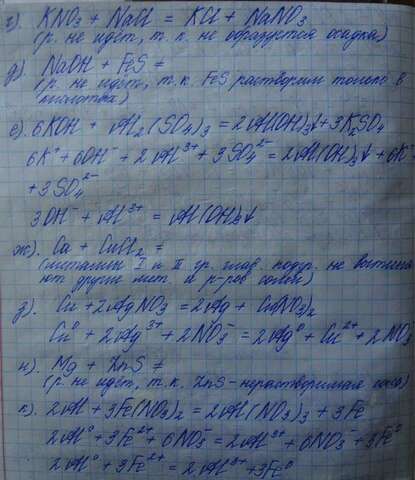 г). KNO₃ + NaCl = KCl + NaNO₃
(р. не идёт, т. к. не образуется осадка)
д). NaOH + FeS ≠
(р. не идёт, т.к. FeS растворим только в
кислотах)
е). 6KOH + Al₂(SO₄)₃ = 2Al(OH)₃↓ + 3K₂SO₄
6K⁺ + 6OH⁻ + 2Al³⁺ + 3SO₄²⁻ = 2Al(OH)₃↓ + 6K⁺
+ 3SO₄²⁻
3OH⁻ + Al³⁺ = Al(OH)₃↓
ж). Ca + CuCl₂ ≠
(металлы I и II гр. глав. подгр. не вытесня
ют другие мет. из р-ров солей)
з). Cu + 2AgNO₃ = 2Ag + Cu(NO₃)₂
Cu⁰ + 2Ag⁺ + 2NO₃⁻ = 2Ag⁰ + Cu²⁺ + 2NO₃
и). Mg + ZnS ≠
(р. не идёт, т.к. ZnS - нерастворимая соль)
к). 2Al + 3Fe(NO₃)₂ = 2Al(NO₃)₃ + 3Fe
2Al⁰ + 3Fe²⁺ + 6NO₃⁻ = 2Al³⁺ + 6NO₃⁻ + 3Fe⁰
2Al⁰ + 3Fe²⁺ = 2Al³⁺ + 3Fe⁰